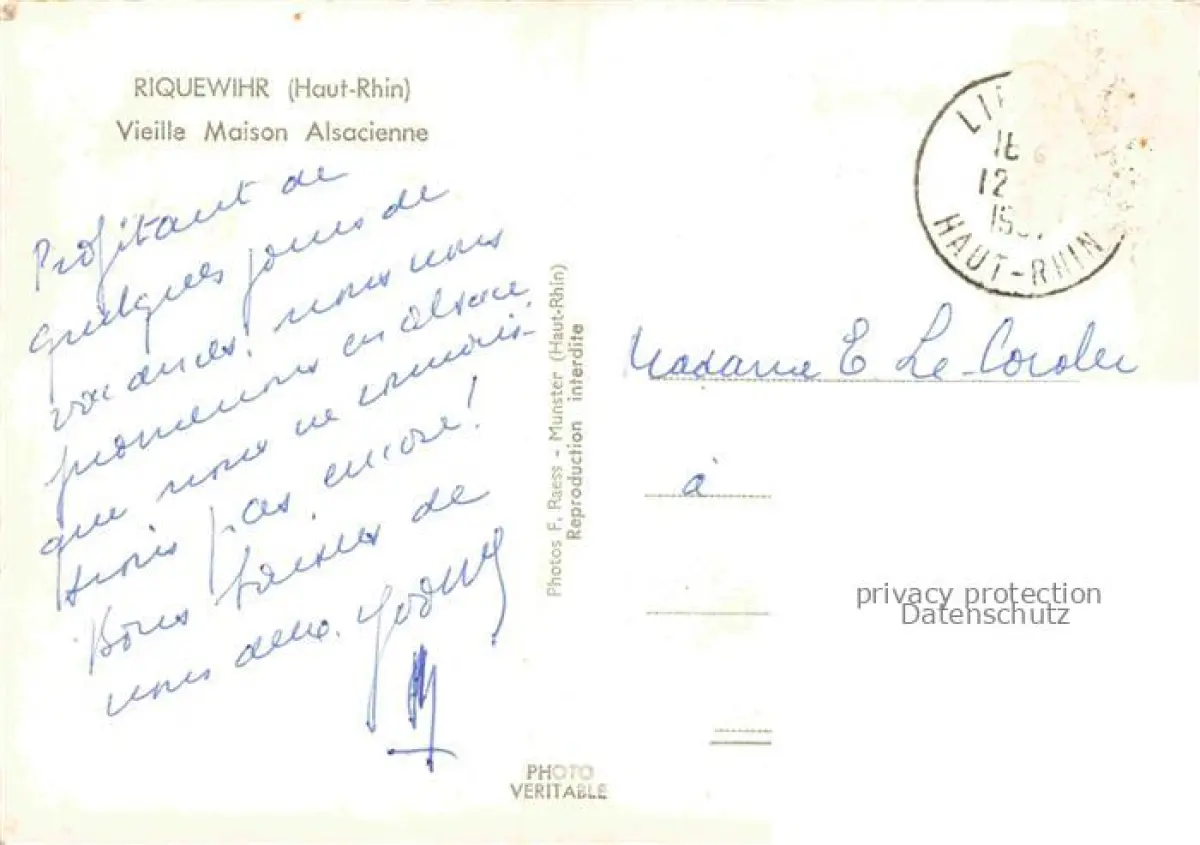 RIQUEWIHR (Haut-Rhin)
Vieille Maison Alsacienne
Profitant de
quelques jours de
vacances, nous nous
promenons en alsace,
que nous ne connais-
sions pas encore!
Bons baisers de
nous deux.
Photos F. Raess - Munster (Haut-Rhin)
Reproduction interdite
PHOTO
VERITABLE
HAUT-RHIN
Madame E Le
à
privacy protection
Datenschutz